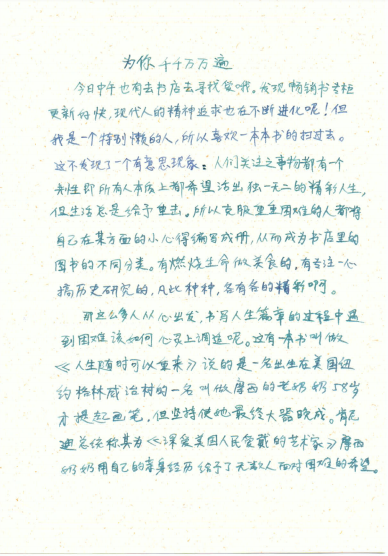 为你千千万万遍
今日中午也有去书店去寻找爱哦。发现畅销书专柜
更新好快，现代人的精神追求也在不断进化呢！但
我是一个特别懒的人，所以喜欢一本本书的扫过去。
这不发现了一个有意思现象：人们关注之事物都有一个
共性即所有人本质上都希望活出独一无二的精彩人生，
但生活总是给予重击。所以克服重重困难的人都将
自己在某方面的小心得编写成册，从而成为书店里的
图书的不同分类。有燃烧生命做美食的，有专注一心
搞历史研究的，凡此种种，各有各的精彩啊。
那这么多人从心出发，书写人生篇章的过程中遇
到困难该如何心灵上调适呢。这有一本书叫做
《人生随时可以重来》说的是一名出生在美国纽
约格林威治村的一名叫做摩西的老奶奶58岁
才提起画笔，但坚持使她最终大器晚成。肯尼
迪总统称其为《深爱美国人民爱戴的艺术家》摩西
奶奶用自己的亲身经历给予了无数人面对困难的希望。